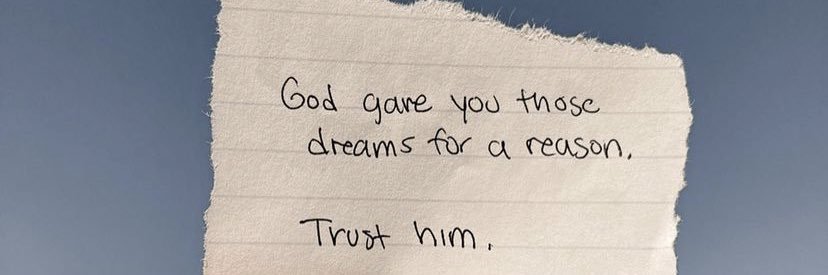 God gave you those
dreams for a reason.
Trust him.